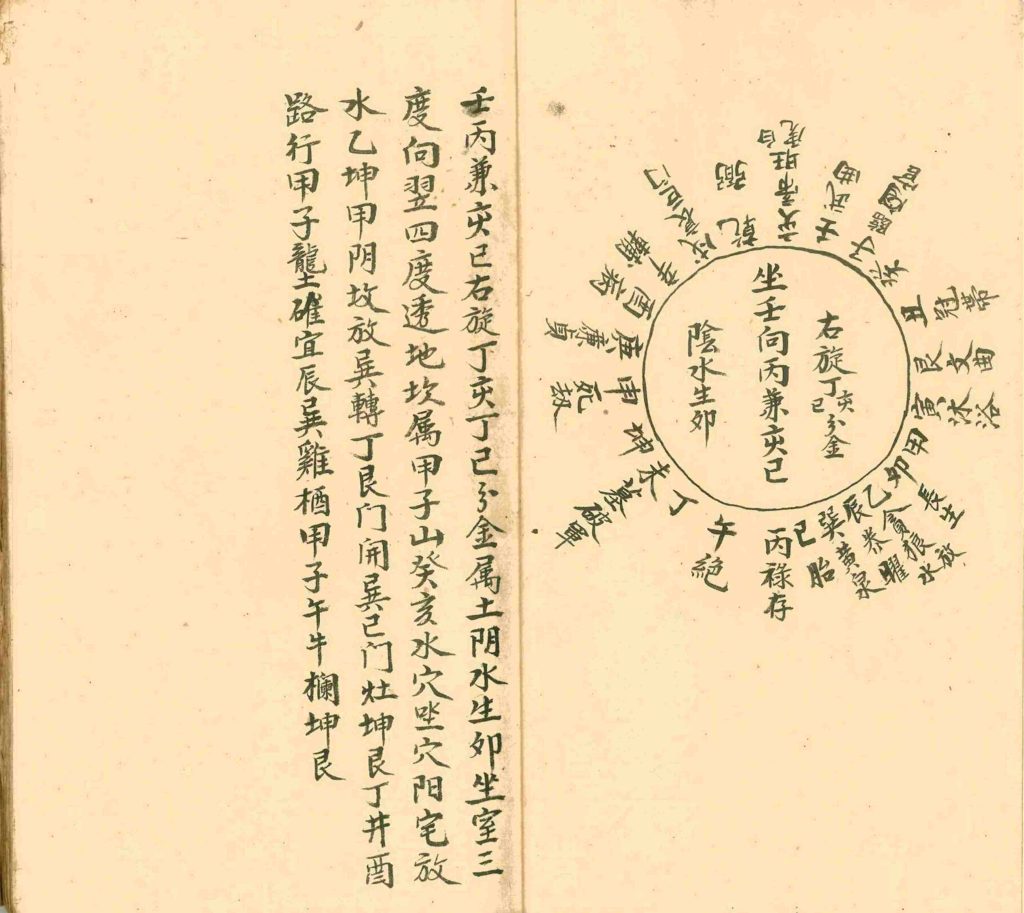 坐壬向丙兼亥巳
右旋丁亥丁巳分金
陰水生卯
壬武曲
子
丑冠帶
艮文曲
寅沐浴
甲
卯長生放水
乙貪狼
辰養
巽黃泉
巳胎
丙祿存
午絕
丁
未墓破軍
坤
申死
庚廉貞
酉病
辛
戌衰巨门
乾弼
亥帝旺白虎
壬丙兼亥巳右旋丁亥丁巳分金属土阴水生卯坐室三
度向翌四度透地坎属甲子山癸亥水穴坐穴阳宅放
水乙坤甲阴坟放巽轉丁艮门開巽巳门灶坤艮丁井酉
路行甲子龍碓宜辰巽雞栖甲子午牛欄坤艮